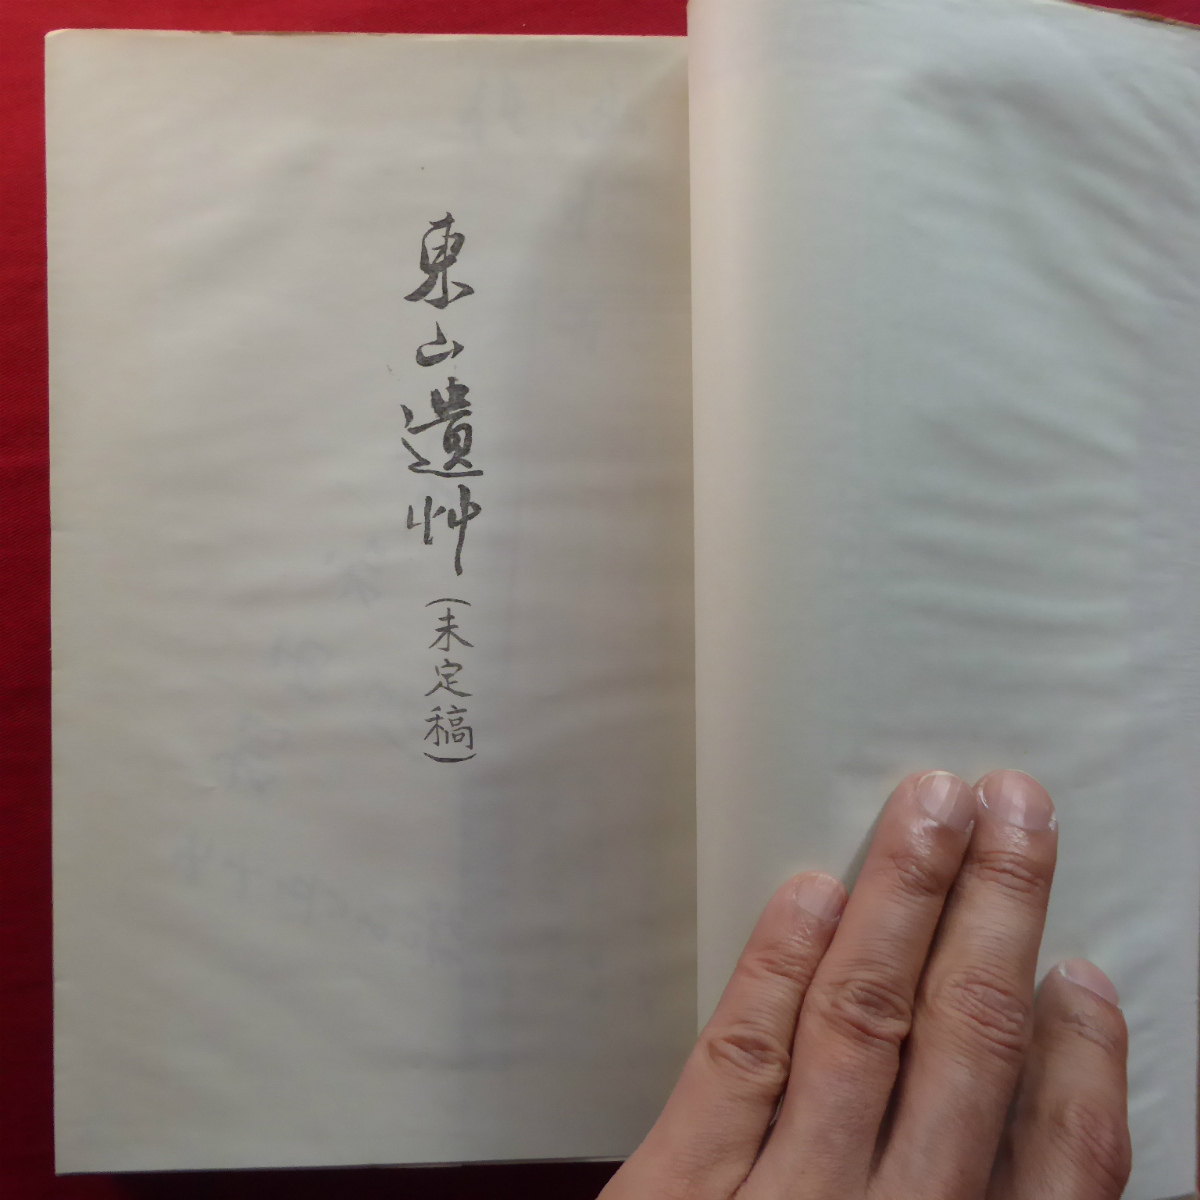 東山遺艸(未定稿)